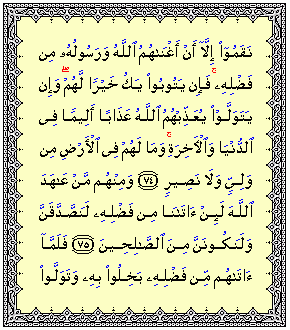 نَقَمُوٓا۟ إِلَّآ أَنْ أَغْنَىٰهُمُ ٱللَّهُ وَرَسُولُهُۥ مِن
فَضْلِهِۦ ۚ فَإِن يَتُوبُوا۟ يَكُ خَيْرًا لَّهُمْ ۖ وَإِن
يَتَوَلَّوْا۟ يُعَذِّبْهُمُ ٱللَّهُ عَذَابًا أَلِيمًا فِى
ٱلدُّنْيَا وَٱلْءَاخِرَةِ ۚ وَمَا لَهُمْ فِى ٱلْأَرْضِ مِن
وَلِىٍّ وَلَا نَصِيرٍ ﴿٧٤﴾ وَمِنْهُم مَّنْ عَٰهَدَ
ٱللَّهَ لَئِنْ ءَاتَىٰنَا مِن فَضْلِهِۦ لَنَصَّدَّقَنَّ
وَلَنَكُونَنَّ مِنَ ٱلصَّٰلِحِينَ ﴿٧٥﴾ فَلَمَّآ
ءَاتَىٰهُم مِّن فَضْلِهِۦ بَخِلُوا۟ بِهِۦ وَتَوَلَّوا۟